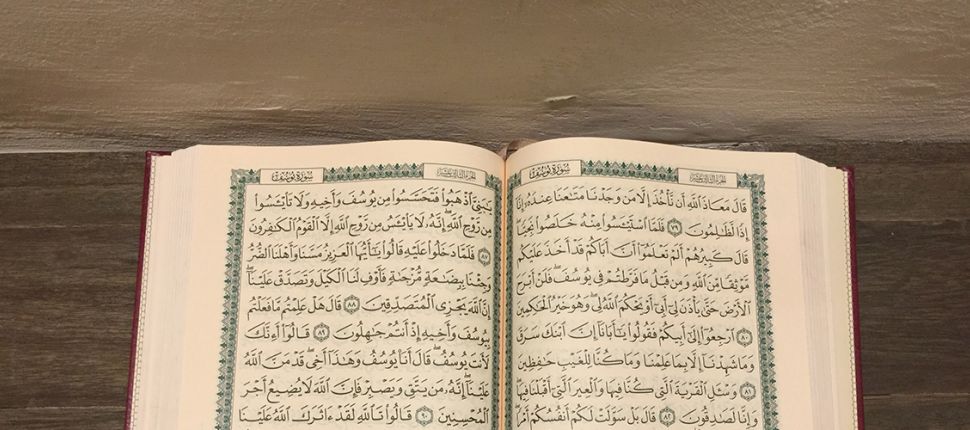 سورة يوسف
الجزء الثالث عشر
قَالَ مَعَاذَ ٱللَّهِ أَن نَّأۡخُذَ إِلَّا مَن وَجَدۡنَا مَتَٰعَنَا عِندَهُۥٓ إِنَّآ
إِذٗا لَّظَٰلِمُونَ ٧٩ فَلَمَّا ٱسۡتَيۡـَٔسُواْ مِنۡهُ خَلَصُواْ نَجِيّٗاۖ
قَالَ كَبِيرُهُمۡ أَلَمۡ تَعۡلَمُوٓاْ أَنَّ أَبَاكُمۡ قَدۡ أَخَذَ عَلَيۡكُم
مَّوۡثِقٗا مِّنَ ٱللَّهِ وَمِن قَبۡلُ مَا فَرَّطتُمۡ فِي يُوسُفَۖ فَلَنۡ أَبۡرَحَ
ٱلۡأَرۡضَ حَتَّىٰ يَأۡذَنَ لِيٓ أَبِيٓ أَوۡ يَحۡكُمَ ٱللَّهُ لِيۖ وَهُوَ خَيۡرُ ٱلۡحَٰكِمِينَ
٨٠ ٱرۡجِعُوٓاْ إِلَىٰٓ أَبِيكُمۡ فَقُولُواْ يَٰٓأَبَانَآ إِنَّ ٱبۡنَكَ سَرَقَ
وَمَا شَهِدۡنَآ إِلَّا بِمَا عَلِمۡنَا وَمَا كُنَّا لِلۡغَيۡبِ حَٰفِظِينَ
٨١ وَسۡـَٔلِ ٱلۡقَرۡيَةَ ٱلَّتِي كُنَّا فِيهَا وَٱلۡعِيرَ ٱلَّتِيٓ أَقۡبَلۡنَا فِيهَاۖ
وَإِنَّا لَصَٰدِقُونَ ٨٢ قَالَ بَلۡ سَوَّلَتۡ لَكُمۡ أَنفُسُكُمۡ أَمۡرٗاۖ
سورة يوسف
الجزء الثالث عشر
يَٰبَنِيَّ ٱذۡهَبُواْ فَتَحَسَّسُواْ مِن يُوسُفَ وَأَخِيهِ وَلَا تَاْيۡـَٔسُواْ
مِن رَّوۡحِ ٱللَّهِۖ إِنَّهُۥ لَا يَاْيۡـَٔسُ مِن رَّوۡحِ ٱللَّهِ إِلَّا ٱلۡقَوۡمُ ٱلۡكَٰفِرُونَ
٨٧ فَلَمَّا دَخَلُواْ عَلَيۡهِ قَالُواْ يَٰٓأَيُّهَا ٱلۡعَزِيزُ مَسَّنَا وَأَهۡلَنَا ٱلضُّرُّ
وَجِئۡنَا بِبِضَٰعَةٖ مُّزۡجَىٰةٖ فَأَوۡفِ لَنَا ٱلۡكَيۡلَ وَتَصَدَّقۡ عَلَيۡنَآۖ
إِنَّ ٱللَّهَ يَجۡزِي ٱلۡمُتَصَدِّقِينَ ٨٨ قَالَ هَلۡ عَلِمۡتُم مَّا فَعَلۡتُم
بِيُوسُفَ وَأَخِيهِ إِذۡ أَنتُمۡ جَٰهِلُونَ ٨٩ قَالُوٓاْ أَءِنَّكَ
لَأَنتَ يُوسُفُۖ قَالَ أَنَا۠ يُوسُفُ وَهَٰذَآ أَخِيۖ قَدۡ مَنَّ ٱللَّهُ
عَلَيۡنَآۖ إِنَّهُۥ مَن يَتَّقِ وَيَصۡبِرۡ فَإِنَّ ٱللَّهَ لَا يُضِيعُ أَجۡرَ
ٱلۡمُحۡسِنِينَ ٩٠ قَالُواْ تَٱللَّهِ لَقَدۡ ءَاثَرَكَ ٱللَّهُ عَلَيۡنَا